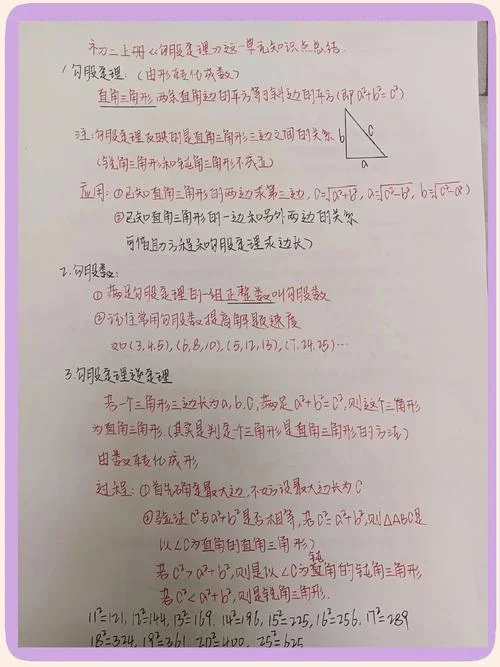 初二上册《勾股定理》这一单元知识点总结.
1.勾股定理.（由形转化成数）
直角三角形两条直角边的平方等于斜边的平方(即a²+b²=c²)
注:勾股定理反映的是直角三角形三边之间的关系
(锐角三角形和钝角三角形不成立)
b c a
应用:①已知直角三角形的两边求第三边, c=√a²+b², a=√c²-b², b=√c²-a²)
②已知直角三角形的一边和另外两边的关系
可借助方程和勾股定理求边长)
2.勾股数:
①满足勾股定理的一组正整数叫勾股数
②记住常用勾股数提高解题速度
如(3,4,5),(6,8,10),(5,12,13),(7,24,25)…
3.勾股定理逆定理
若一个三角形三边长为a.b.c,满足a²+b²=c²,则这个三角形
为直角三角形.(其实是判定一个三角形是直角三角形的方法)
由数转化成形
过程:①首先确定最大边,不妨设最大边长为C
②验证c²与a²+b²是否相等,若c²=a²+b²,则△ABC是
以∠C为直角的直角三角形)
若c²>a²+b²,则是以∠C为钝角的钝角三角形
若c²<a²+b²,则是锐角三角形.
11²=121, 12²=144, 13²=169. 14²=196, 15²=225, 16²=256, 17²=289
18²=324, 19²=361, 20²=400, 25²=625